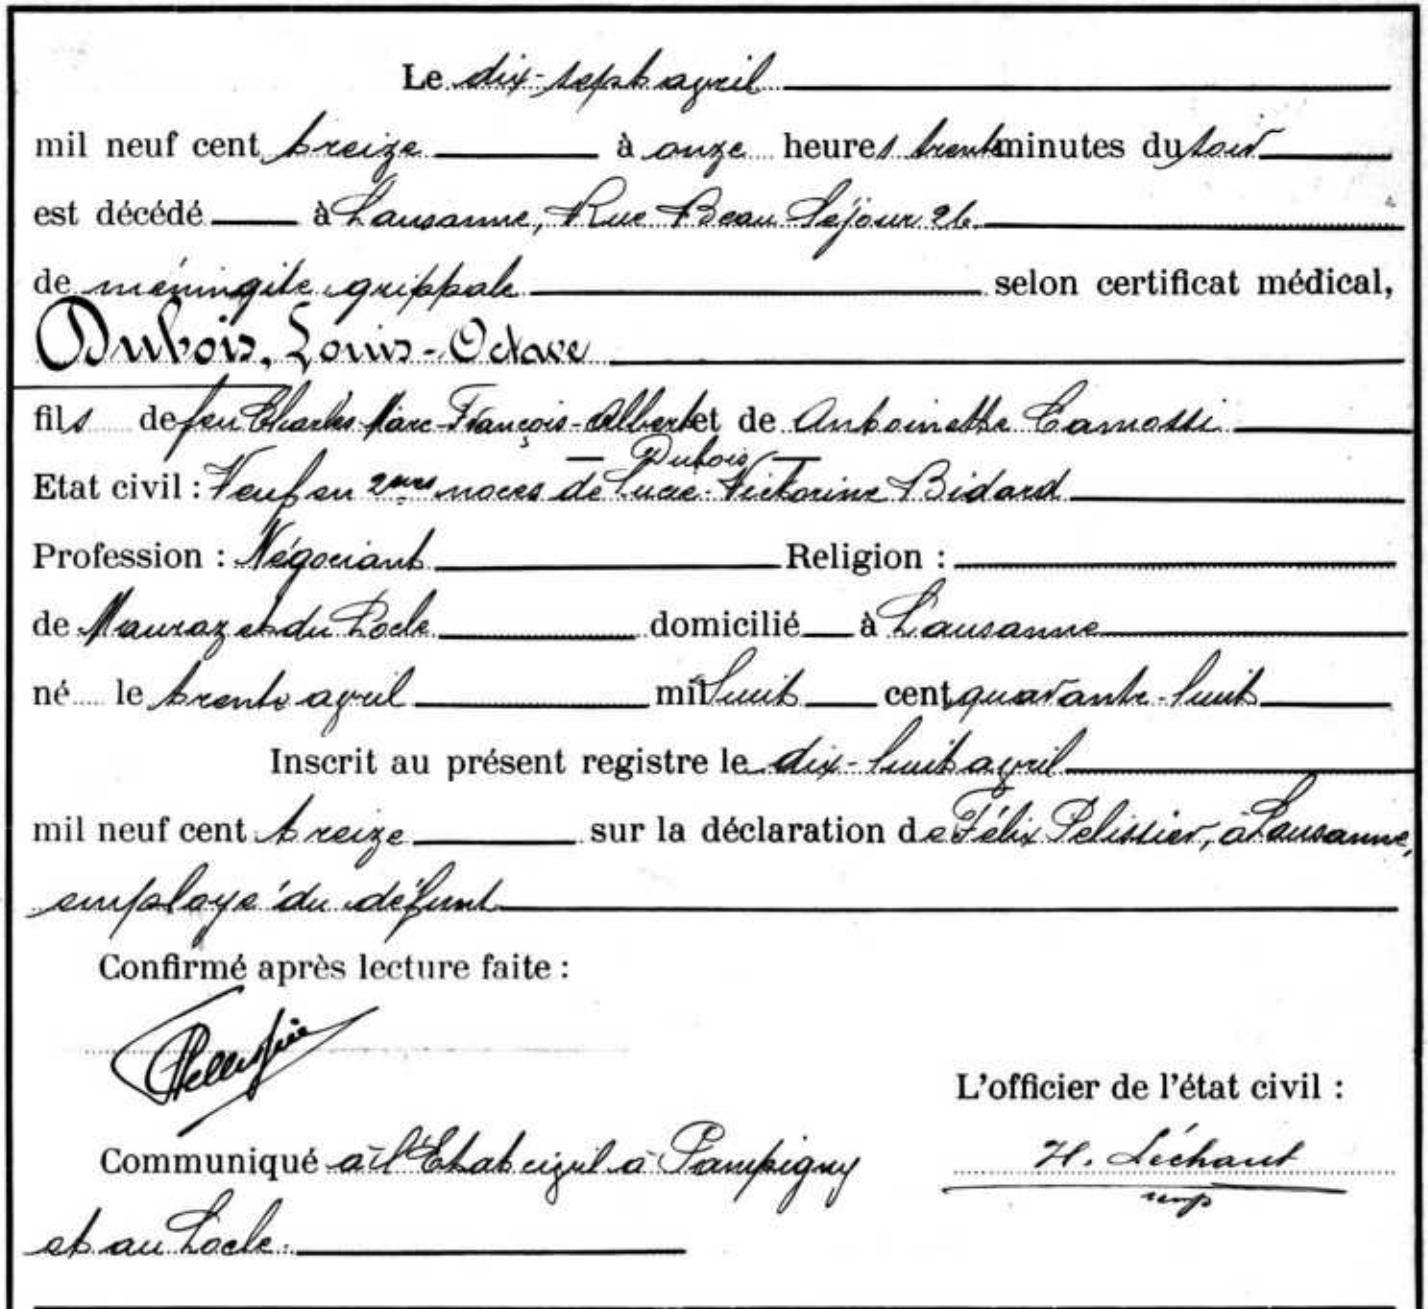 Le dix-sept avril
mil neuf cent treize à onze heures trente minutes du soir
est décédé à Lausanne, Rue Beau Séjour 26
de méningite grippale selon certificat médical,
Dubois, Louis-Octave
fils de feu Charles-Marc-François-Albert et de Antoinette Camossi
— Dubois —
Etat civil : Veuf en 2mes noces de Lucie-Victorine Bidard
Profession : Négociant Religion :
de Mauraz et du Locle domicilié à Lausanne
né le trente avril mil huit cent quarante-huit
Inscrit au présent registre le dix-huit avril
mil neuf cent treize sur la déclaration de Félix Pelissier, à Lausanne,
employé du défunt
Confirmé après lecture faite :
L'officier de l'état civil :
Communiqué à l'Etat civil à Pampigny H. Déchant
remp
et au Locle.